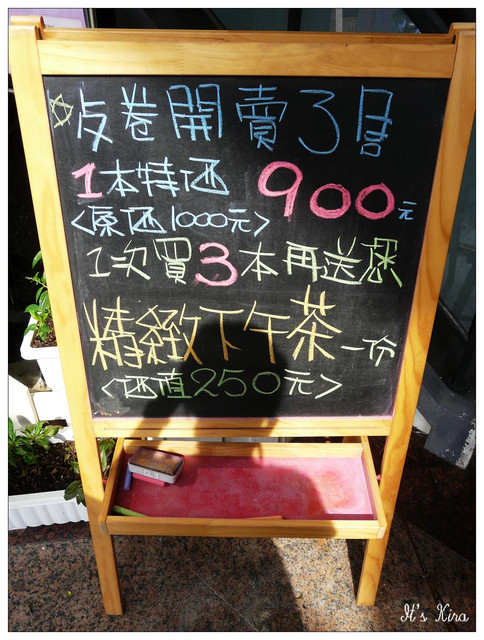 ☆点卷開賣了目
1本特価900元
<原価1000元>
1次買3本再送您
精緻下午茶一份
<価直250元>
It's Kira